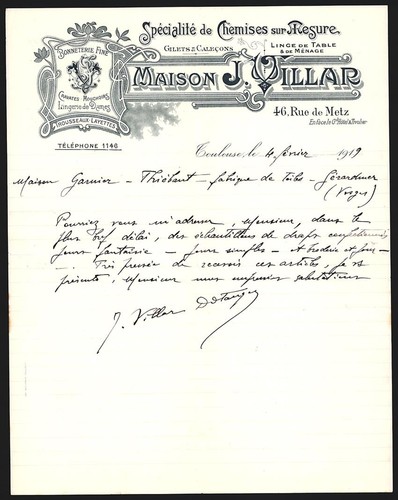 Spécialité de Chemises sur Mesure
GILETS & CALEÇONS
LINGE DE TABLE
& DE MÉNAGE
MAISON J. VILLAR
46, Rue de Metz
BONNETERIE FINE
CRAVATES MOUCHOIRS
Lingerie de Dames
TROUSSEAUX-LAYETTES
TÉLÉPHONE 1146
Toulouse, le 4 février 1919
Maison Garnier - Thiébaut - fabrique de - Gérardmer
(Vosges)
Pourriez vous m'adresser, Monsieur, dans le
plus bref délai, des échantillons de draps
jours fantaisie - jours simples - et brodés et
- . Très pressée de recevoir ces articles, je vs
présente, Monsieur mes salutations
J. Villar